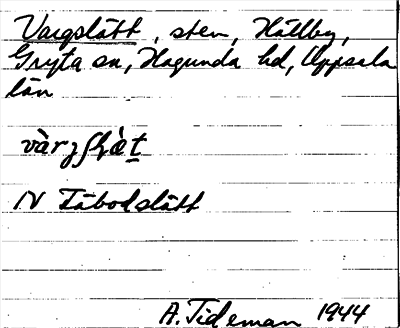 Vargslätt, sten, Hällby,
Gryta sn, Hagunda hd, Uppsala
län
N Fäbodslätt
A. Tideman 1944